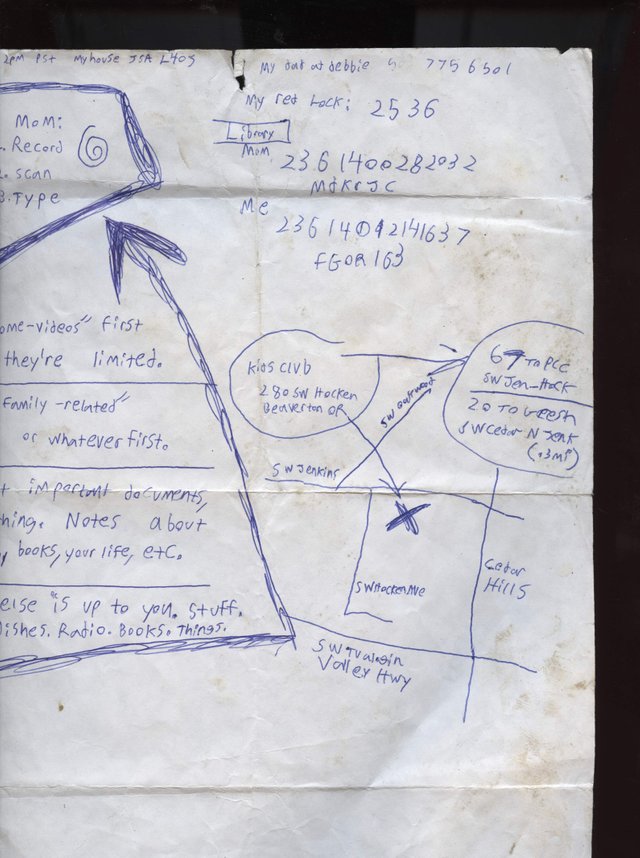 2pm PST myhouse JSA L409
My dat at debbie 5 7756501
My red lock: 2536
Library
Mom
2361400282032
MdKrJC
Me
FGOR163
MOM:
. Record
. scan
3. Type
ome-videos" first
they're limited.
Family-related"
or whatever first.
t important documents,
hing. Notes about
y books, your life, etc.
else is up to you. Stuff.
ishes. Radio. Books. Things.
Kids Club
280 SW Hocken
Beaverton OR
67 TO PCC
SW Jen-Hock
20 TO
SW Cedar N Jenk
(.3mi)
SW
SW Jenkins
SW Hocken Ave
Cedar
Hills
SW Tualatin
Valley Hwy